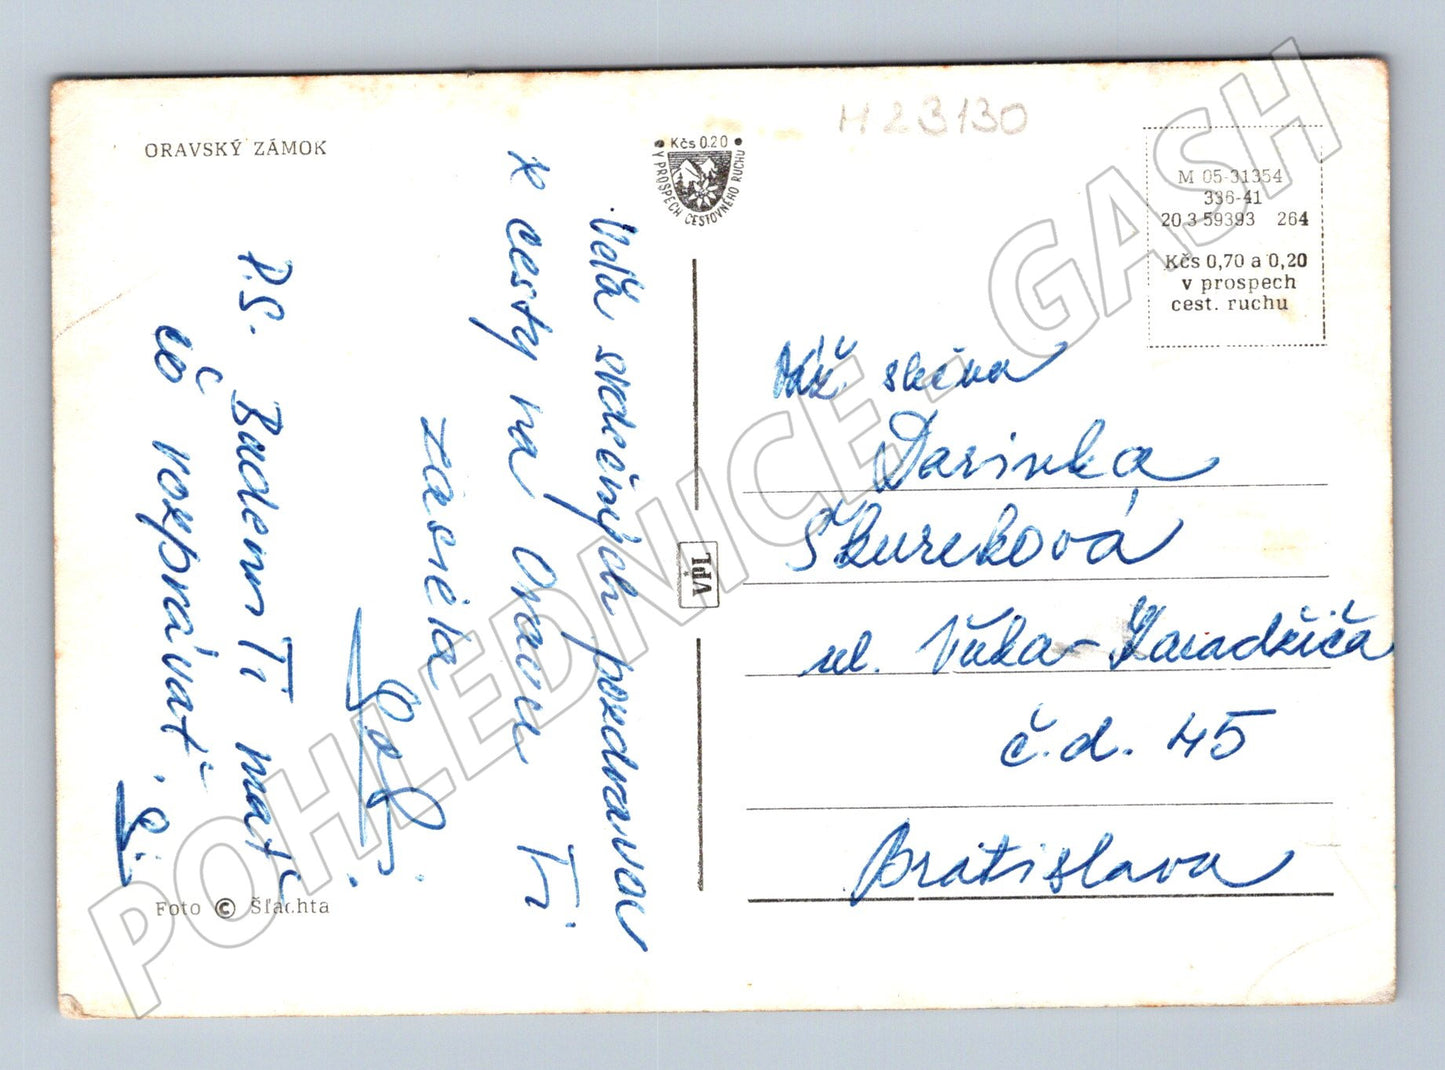 ORAVSKÝ ZÁMOK
H23130
Kčs 0.20
V PROSPECH CESTOVNÉHO RUCHU
M 05-31354
336-41
20.3 59393 264
Kčs 0,70 a 0,20
v prospech
cest. ruchu
Veľa srdečných pozdravov
z cesty na Oravu Ti
zasiela
P.S. Budem Ti mať
čo rozprávať
VPL
Váž. slečna
Darinka
Škureková
ul. Vuka-Karadžiča
č.d. 45
Bratislava
Foto © Šľachta
POHLEDNICE - GASH